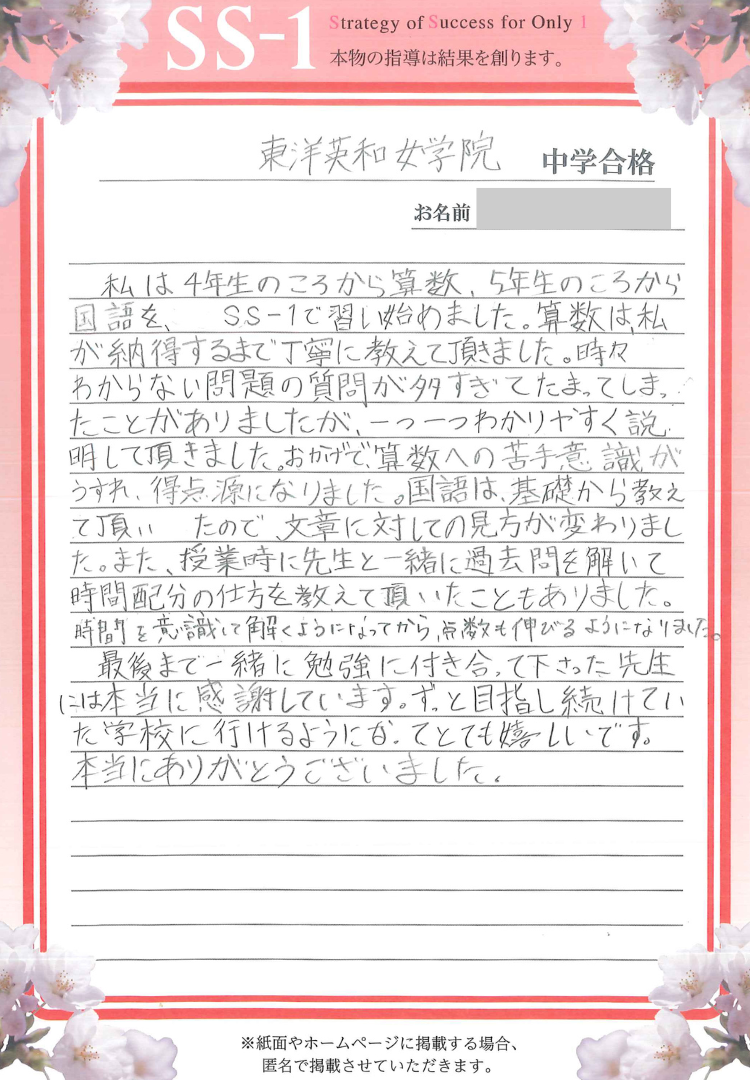 SS-1
Strategy of Success for Only 1
本物の指導は結果を創ります。
東洋英和女学院 中学合格
お名前
私は4年生のころから算数、5年生のころから
国語を、 SS-1で習い始めました。算数は、私
が納得するまで丁寧に教えて頂きました。時々
わからない問題の質問が多すぎてたまってしまっ
たことがありましたが、一つ一つわかりやすく説
明して頂きました。おかげで、算数への苦手意識が
うすれ、得点源になりました。国語は、基礎から教え
て頂い たので、文章に対しての見方が変わりまし
た。また、授業時に先生と一緒に過去問を解いて
時間配分の仕方を教えて頂いたこともありました。
時間を意識して解くようになってから、点数も伸びるようになりました。
最後まで一緒に勉強に付き合って下さった先生
には本当に感謝しています。ずっと目指し続けてい
た学校に行けるようになってとても嬉しいです。
本当にありがとうございました。
※紙面やホームページに掲載する場合、
匿名で掲載させていただきます。